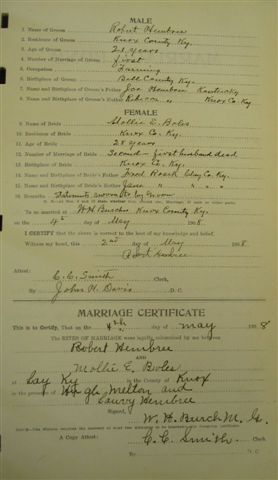 MALE
1. Name of Groom Robert Hembree
2. Residence of Groom Knox County Ky.
3. Age of Groom 21 years
4. Number of Marriage of Groom first
5. Occupation Farming
6. Birthplace of Groom Bell County Ky.
7. Name and Birthplace of Groom's Father Joe Hembree Kentucky
8. Name and Birthplace of Groom's Mother Knox Co. Ky
FEMALE
9. Name of Bride Mollie E. Boles
10. Residence of Bride Knox Co. Ky.
11. Age of Bride 28 years
12. Number of Marriage of Bride Second - first husband dead
13. Birthplace of Bride Knox Co. Ky.
14. Name and Birthplace of Bride's Father Fred Roark Clay Co. Ky.
15. Name and Birthplace of Bride's Mother Jane " " " "
16. Remarks Statements sworn to by Groom
To be married at W H Burchs Knox County Ky.
on the 4th day of May 1908
I CERTIFY that the above is correct to the best of my knowledge and belief.
Witness my hand, this 2nd day of May 1908
Robt Hembree
Attest:
C. C. Smith Clerk,
By John H. Davis D. C.
MARRIAGE CERTIFICATE
This is to Certify, That on the 4th day of May 1908
the RITES OF MARRIAGE were legally solemnized by me between
Robert Hembree
AND
Mollie E. Boles
at Lay Ky in the County of Knox
in the presence of Hugh Melton and
Hembree
Signed, W. H. Burch M. G.
A Copy Attest: C. C. Smith Clerk
By D. C.